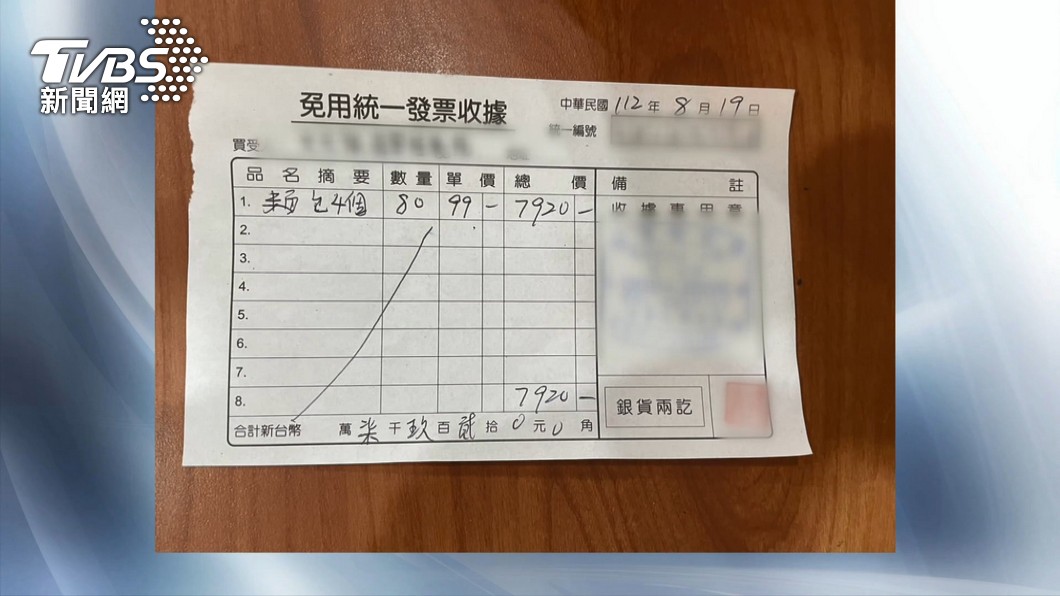 TVBS
新聞網
免用統一發票收據
中華民國 112 年 8 月 19 日
統一編號
買受
品名摘要 數量 單價 總價 備註
收據專用章
1. 麵包4個 80 99 - 7920 -
2.
3.
4.
5.
6.
7.
8. 7920 -
銀貨兩訖
合計新台幣 萬 柒 千 玖 百 貳 拾 0 元 0 角